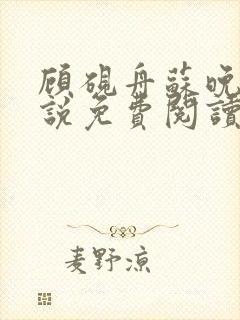 顾砚舟蘇晚
說免費閱讀
麦野凉